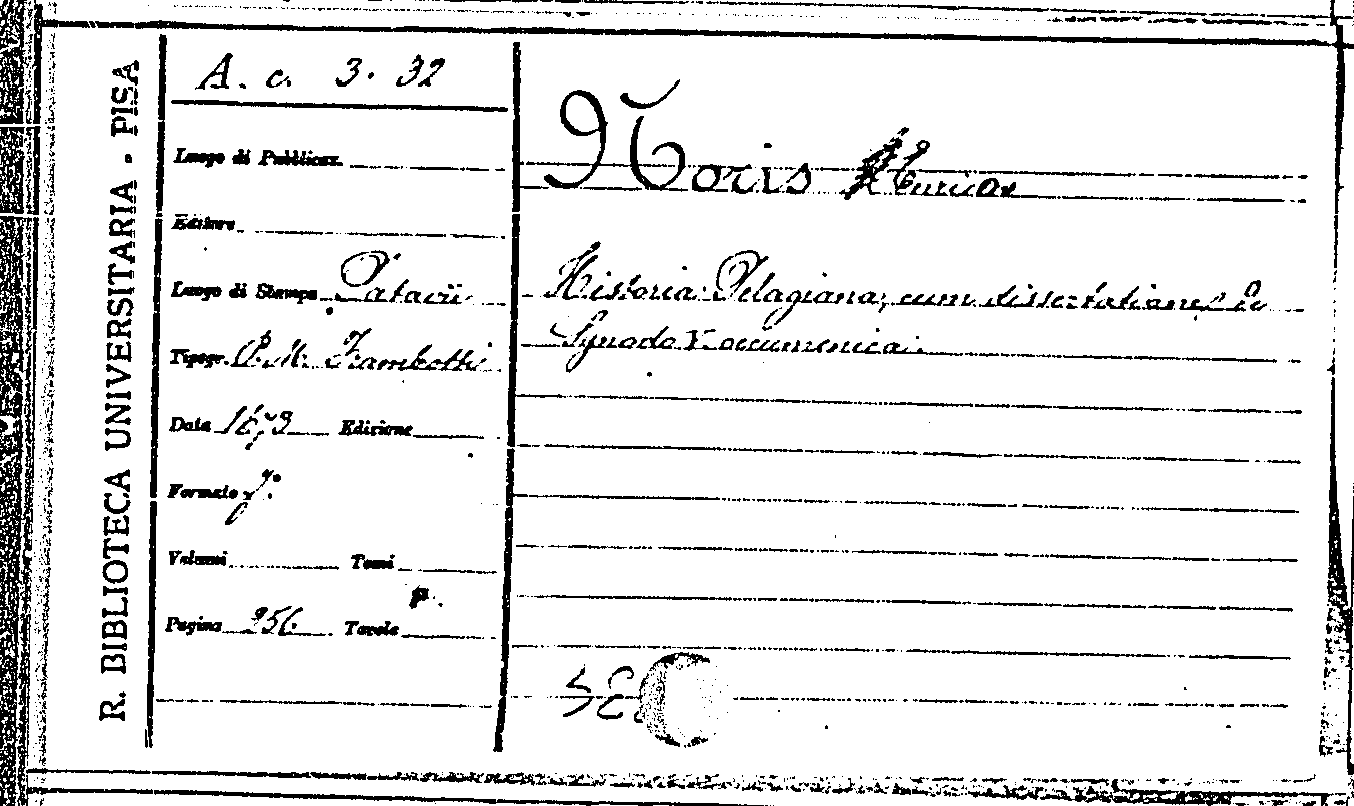 R. BIBLIOTECA UNIVERSITARIA - PISA
A. c. 3. 32
Luogo di Pubblicaz.
Editore
Luogo di Stampa Patavii
Tipogr. P. M. Frambotti
Data 1673 Edizione
Formato f.°
Volumi Tomi
Pagine 256 Tavole
Noris
Historia Pelagiana, cum dissertatione de
Synodo V. oecumenica.